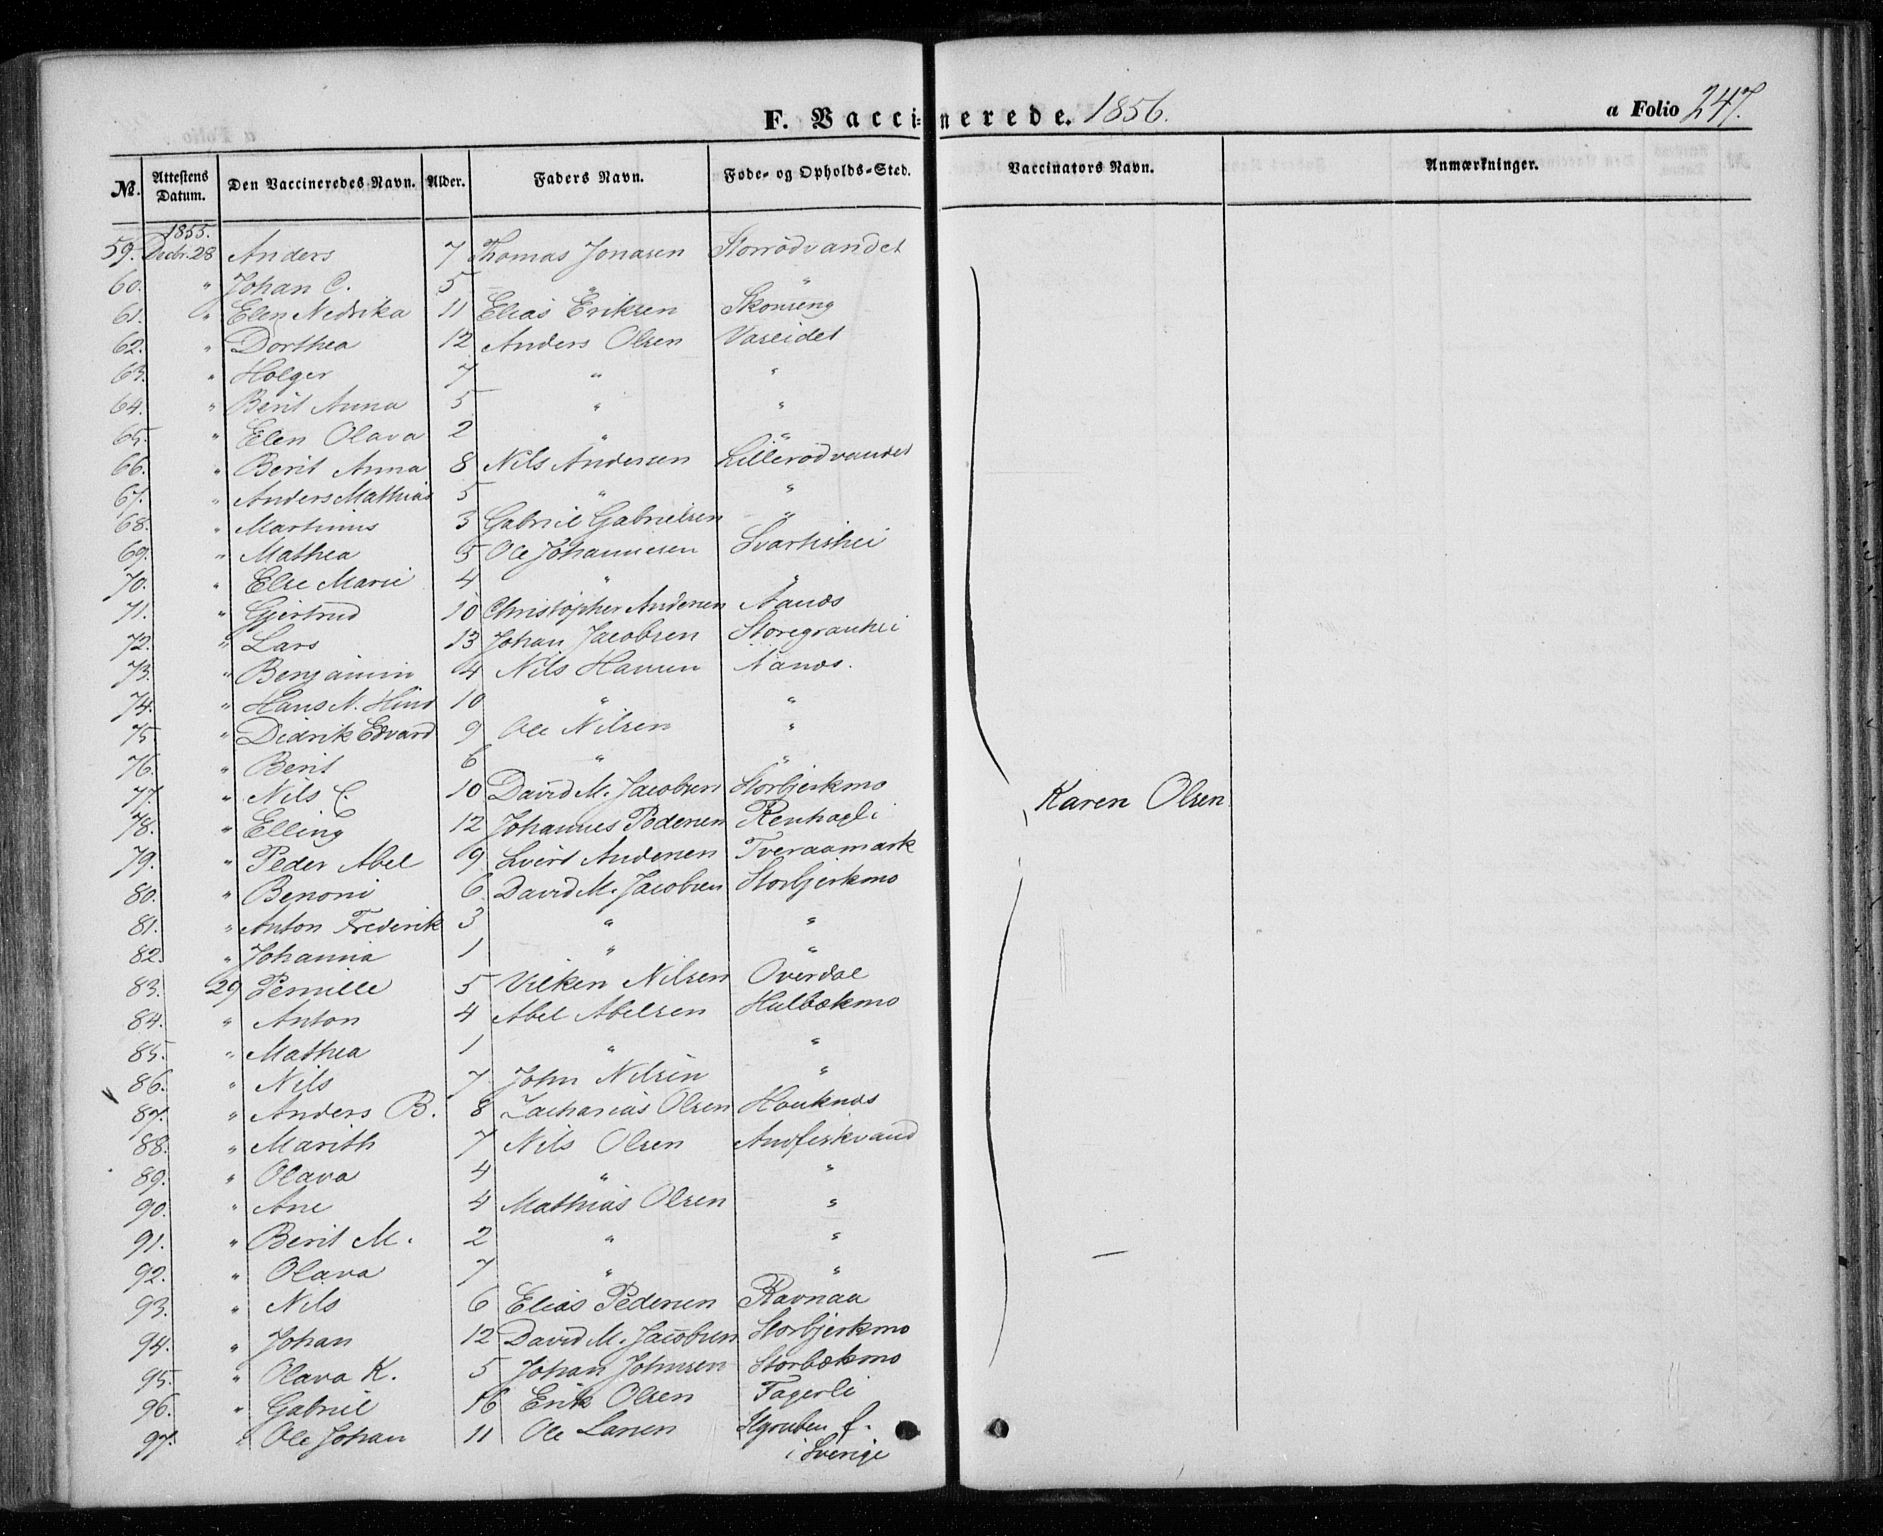 F. Vaccinerede. 1856. a Folio 247.
№. Attestens Datum. Den Vaccineredes Navn. Alder. Faders Navn. Føde- og Opholds-Sted. Vaccinators Navn. Anmærkninger.
1855.
59. Decbr. 28 Anders 7 Thomas Jonasen Storrödvandet
60. " Johan C. 5 " "
61. " Elen Nedrika 11 Elias Eriksen Skonseng
62. " Dorthea 12 Anders Olsen Vaseidet
63. " Holger 7 " "
64. " Berit Anna 5 " "
65. " Elen Olava 2 " "
66. " Berit Anna 8 Nils Andersen Lillerödvandet
67. " Anders Mathias 5 " "
68. " Martinus 3 Gabriel Gabrielsen "
69. " Mathea 5 Ole Johannesen Svartishei
70. " Else Marie 4 " "
71. " Gjertrud 10 Christopher Andersen
72. " Lars 13 Johan Jacobsen Storegranhei
73. " Benjamin 4 Nils Hansen
74. " Hans N. 10 " "
75. " Didrik Edvard 9 Ole Nilsen "
76. " Berit 6 " "
77. " Nils C. 10 David M. Jacobsen Storbjerkmo
78. " Elling 12 Johannes Pedersen Renhagli
79. " Peder Abel 9 Sivert Andersen Tveraamark
80. " Benoni 6 David M. Jacobsen Storbjerkmo
81. " Anton Frederik 3 " "
82. " Johanna 1 " "
83. 29 Pernille 5 Vilken Nilsen Overdal
84. " Anton 4 Abel Abelsen Hulbækmo
85. " Mathea 1 " "
86. " Nils 7 John Nilsen "
87. " Anders B. 8 Zacharias Olsen Hauknes
88. " Marith 7 Nils Olsen Andfiskvand
89. " Olava 4 " "
90. " Ane 4 Mathias Olsen "
91. " Berit M. 2 " "
92. " Olava 7 " "
93. " Nils 6 Elias Pedersen Ravnaa
94. " Johan 12 David M. Jacobsen Storbjerkmo
95. " Olava K. 5 Johan Johnsen Storbækmo
96. " Gabriel 16 Erik Olsen Fagerli
97. " Ole Johan 11 Ole Larsen f.
i Sverige
Karen Olsen